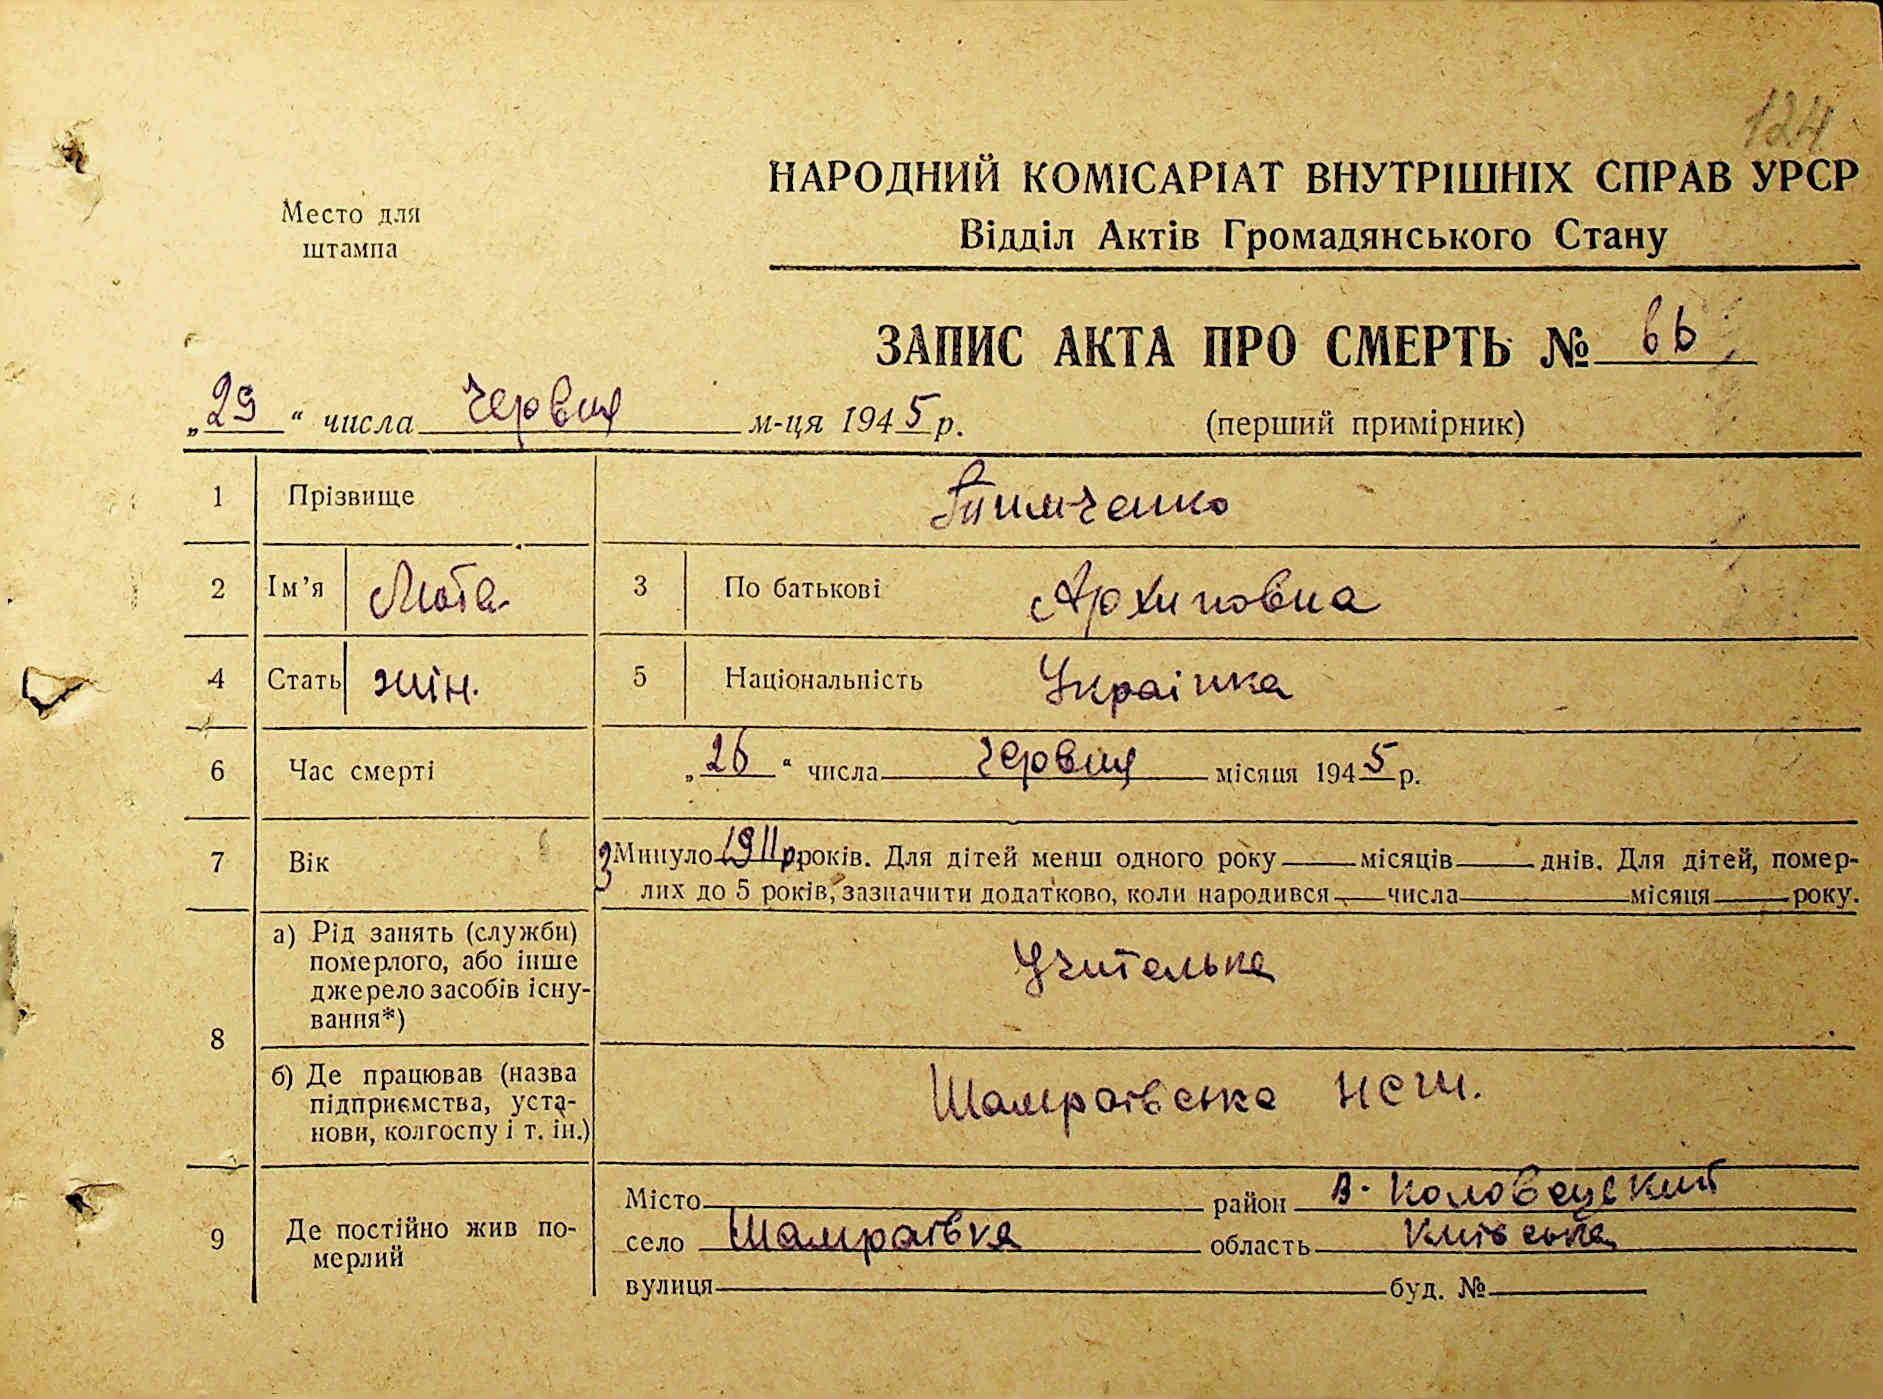 124
НАРОДНИЙ КОМІСАРІАТ ВНУТРІШНІХ СПРАВ УРСР
Место для
штампа
Відділ Актів Громадянського Стану
ЗАПИС АКТА ПРО СМЕРТЬ № 66
„29“ числа Червня м-ця 1945 р. (перший примірник)
1 Прізвище Тимченко
2 Ім’я Мотя 3 По батькові Архиповна
4 Стать жін. 5 Національність Українка
6 Час смерті „26“ числа Червня місяця 1945 р.
7 Вік З Минуло 1911 р. років. Для дітей менш одного року місяців днів. Для дітей, помер-
лих до 5 років, зазначити додатково, коли народився числа місяця року.
8 а) Рід занять (служби)
померлого, або інше
джерело засобів існу-
вання*)
Учителька
б) Де працював (назва
підприємства, уста-
нови, колгоспу і т. ін.)
Шамраївська НСШ.
9 Де постійно жив по-
мерлий
Місто район В-Половецький
село Шамраївка область Київська
вулиця буд. №